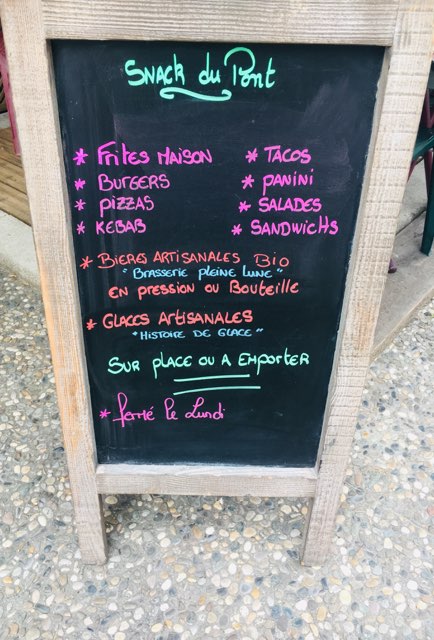 SNACK du Pont
* FRITES MAISON
* BURGERS
* PIZZAS
* KEBAB
* TACOS
* PANINI
* SALADES
* SANDWICHS
* BIERES ARTISANALES BIO
"BRASSERIE PLEINE LUNE"
EN PRESSION OU BOUTEILLE
* GLACES ARTISANALES
"HISTOIRE DE GLACE"
SUR PLACE OU A EMPORTER
* fermé le Lundi